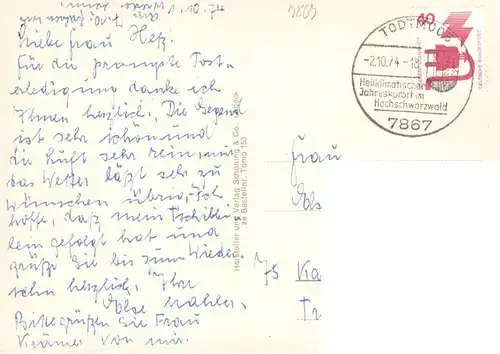 1.10.74
Liebe Frau Hetz!
Für die prompte Post-
erledigung danke ich
Ihnen herzlich. Die Gegend
ist sehr schön und
die Luft sehr rein, nur
das Wetter läßt sehr zu
wünschen übrig. Ich
hoffe, daß mein
lein gefolgt hat und
grüße Sie bis zum Wieder-
sehn herzlich, Ihre
Else
Bitte grüßen Sie Frau
Krämer von mir.
Hersteller und Verlag Schöning & Co.
Bestellnr. Tomo 153
40
TODTMOOS
-2.10.74-18
Heilklimatischer
Jahreskurort im
Hochschwarzwald
7867
Frau
Els
75 Ka
Tr